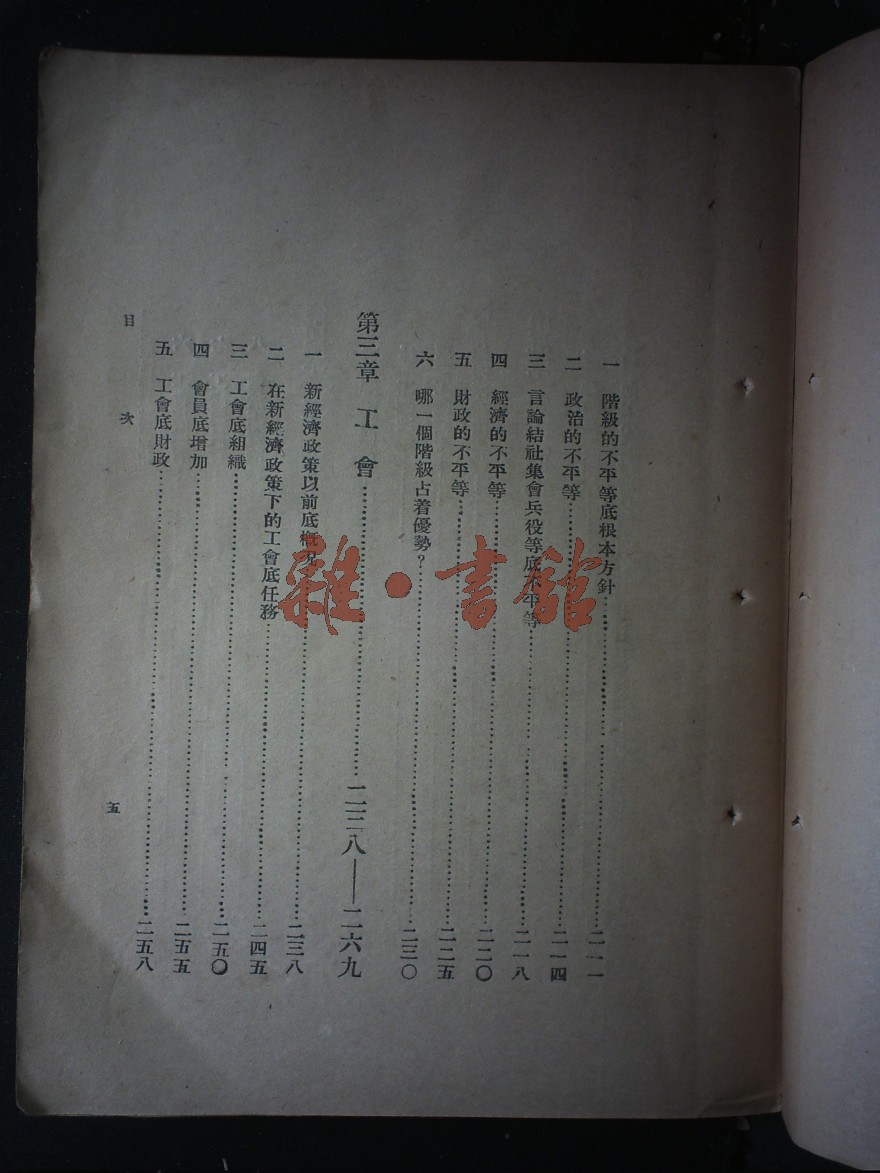 一　階級的不平等底根本方針……二一一
二　政治的不平等……二一四
三　言論結社集會兵役等底不平等……二一八
四　經濟的不平等……二二〇
五　財政的不平等……二二五
六　哪一個階級占着優勢？……二三〇
第三章　工　會……二三八——二六九
一　新經濟政策以前底概況……二三八
二　在新經濟政策下的工會底任務……二四五
三　工會底組織……二五〇
四　會員底增加……二五五
五　工會底財政……二五八
目　次　五
雜·書館